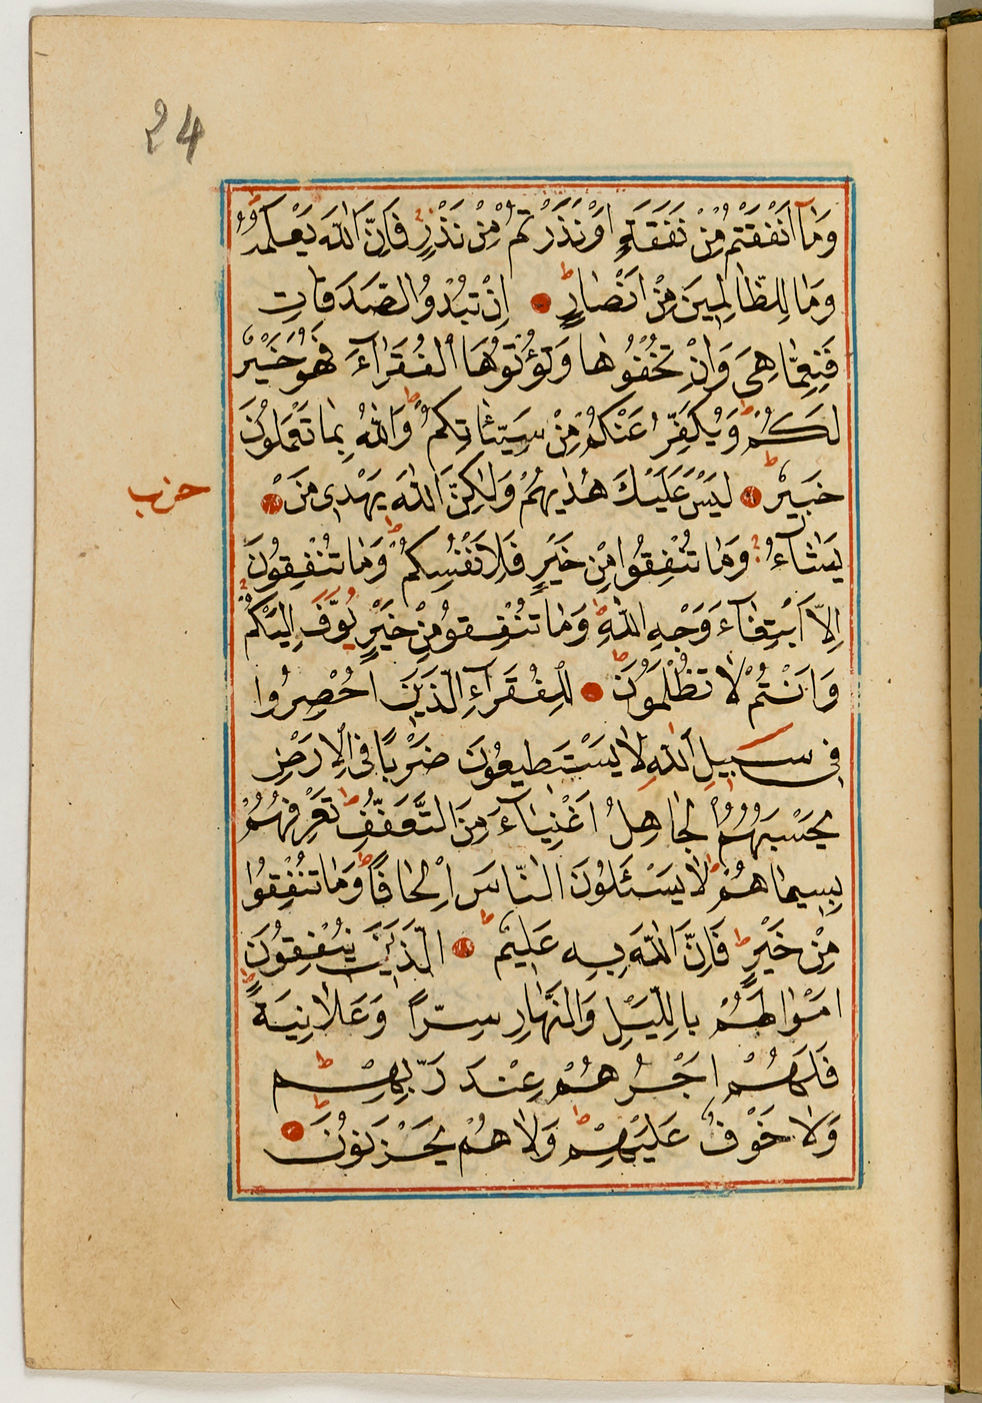 24
وَمَٓا اَنْفَقْتُمْ مِنْ نَفَقَةٍ اَوْ نَذَرْتُمْ مِنْ نَذْرٍ فَاِنَّ اللّٰهَ يَعْلَمُهُ
وَمَا لِلظَّالِمٖينَ مِنْ اَنْصَارٍ ط اِنْ تُبْدُوا الصَّدَقَاتِ
فَنِعِمَّا هِىَ وَاِنْ تُخْفُوهَا وَتُؤْتُوهَا الْفُقَرَٓاءَ فَهُوَ خَيْرٌ
لَكُمْ ط وَيُكَفِّرُ عَنْكُمْ مِنْ سَيِّئٰاتِكُمْ ط وَاللّٰهُ بِمَا تَعْمَلُونَ
خَبٖيرٌ ط لَيْسَ عَلَيْكَ هُدٰيهُمْ وَلٰكِنَّ اللّٰهَ يَهْدٖى مَنْ
حزب
يَشَٓاءُ وَمَا تُنْفِقُوا مِنْ خَيْرٍ فَلِاَنْفُسِكُمْ ط وَمَا تُنْفِقُونَ
اِلَّا ابْتِغَٓاءَ وَجْهِ اللّٰهِ ط وَمَا تُنْفِقُوا مِنْ خَيْرٍ يُوَفَّ اِلَيْكُمْ
وَاَنْتُمْ لَا تُظْلَمُونَ ط لِلْفُقَرَٓاءِ الَّذٖينَ اُحْصِرُوا
فٖى سَبٖيلِ اللّٰهِ لَا يَسْتَطٖيعُونَ ضَرْبًا فِى الْاَرْضِ
يَحْسَبُهُمُ الْجَاهِلُ اَغْنِيَٓاءَ مِنَ التَّعَفُّفِ ط تَعْرِفُهُمْ
بِسٖيمَاهُمْ ط لَا يَسْئَلُونَ النَّاسَ اِلْحَافًا ط وَمَا تُنْفِقُوا
مِنْ خَيْرٍ ط فَاِنَّ اللّٰهَ بِهٖ عَلٖيمٌ ط اَلَّذٖينَ يُنْفِقُونَ
اَمْوَالَهُمْ بِالَّيْلِ وَالنَّهَارِ سِرًّا وَعَلَانِيَةً ط
فَلَهُمْ اَجْرُهُمْ عِنْدَ رَبِّهِمْ ط
وَلَا خَوْفٌ عَلَيْهِمْ ط وَلَا هُمْ يَحْزَنُونَ ط